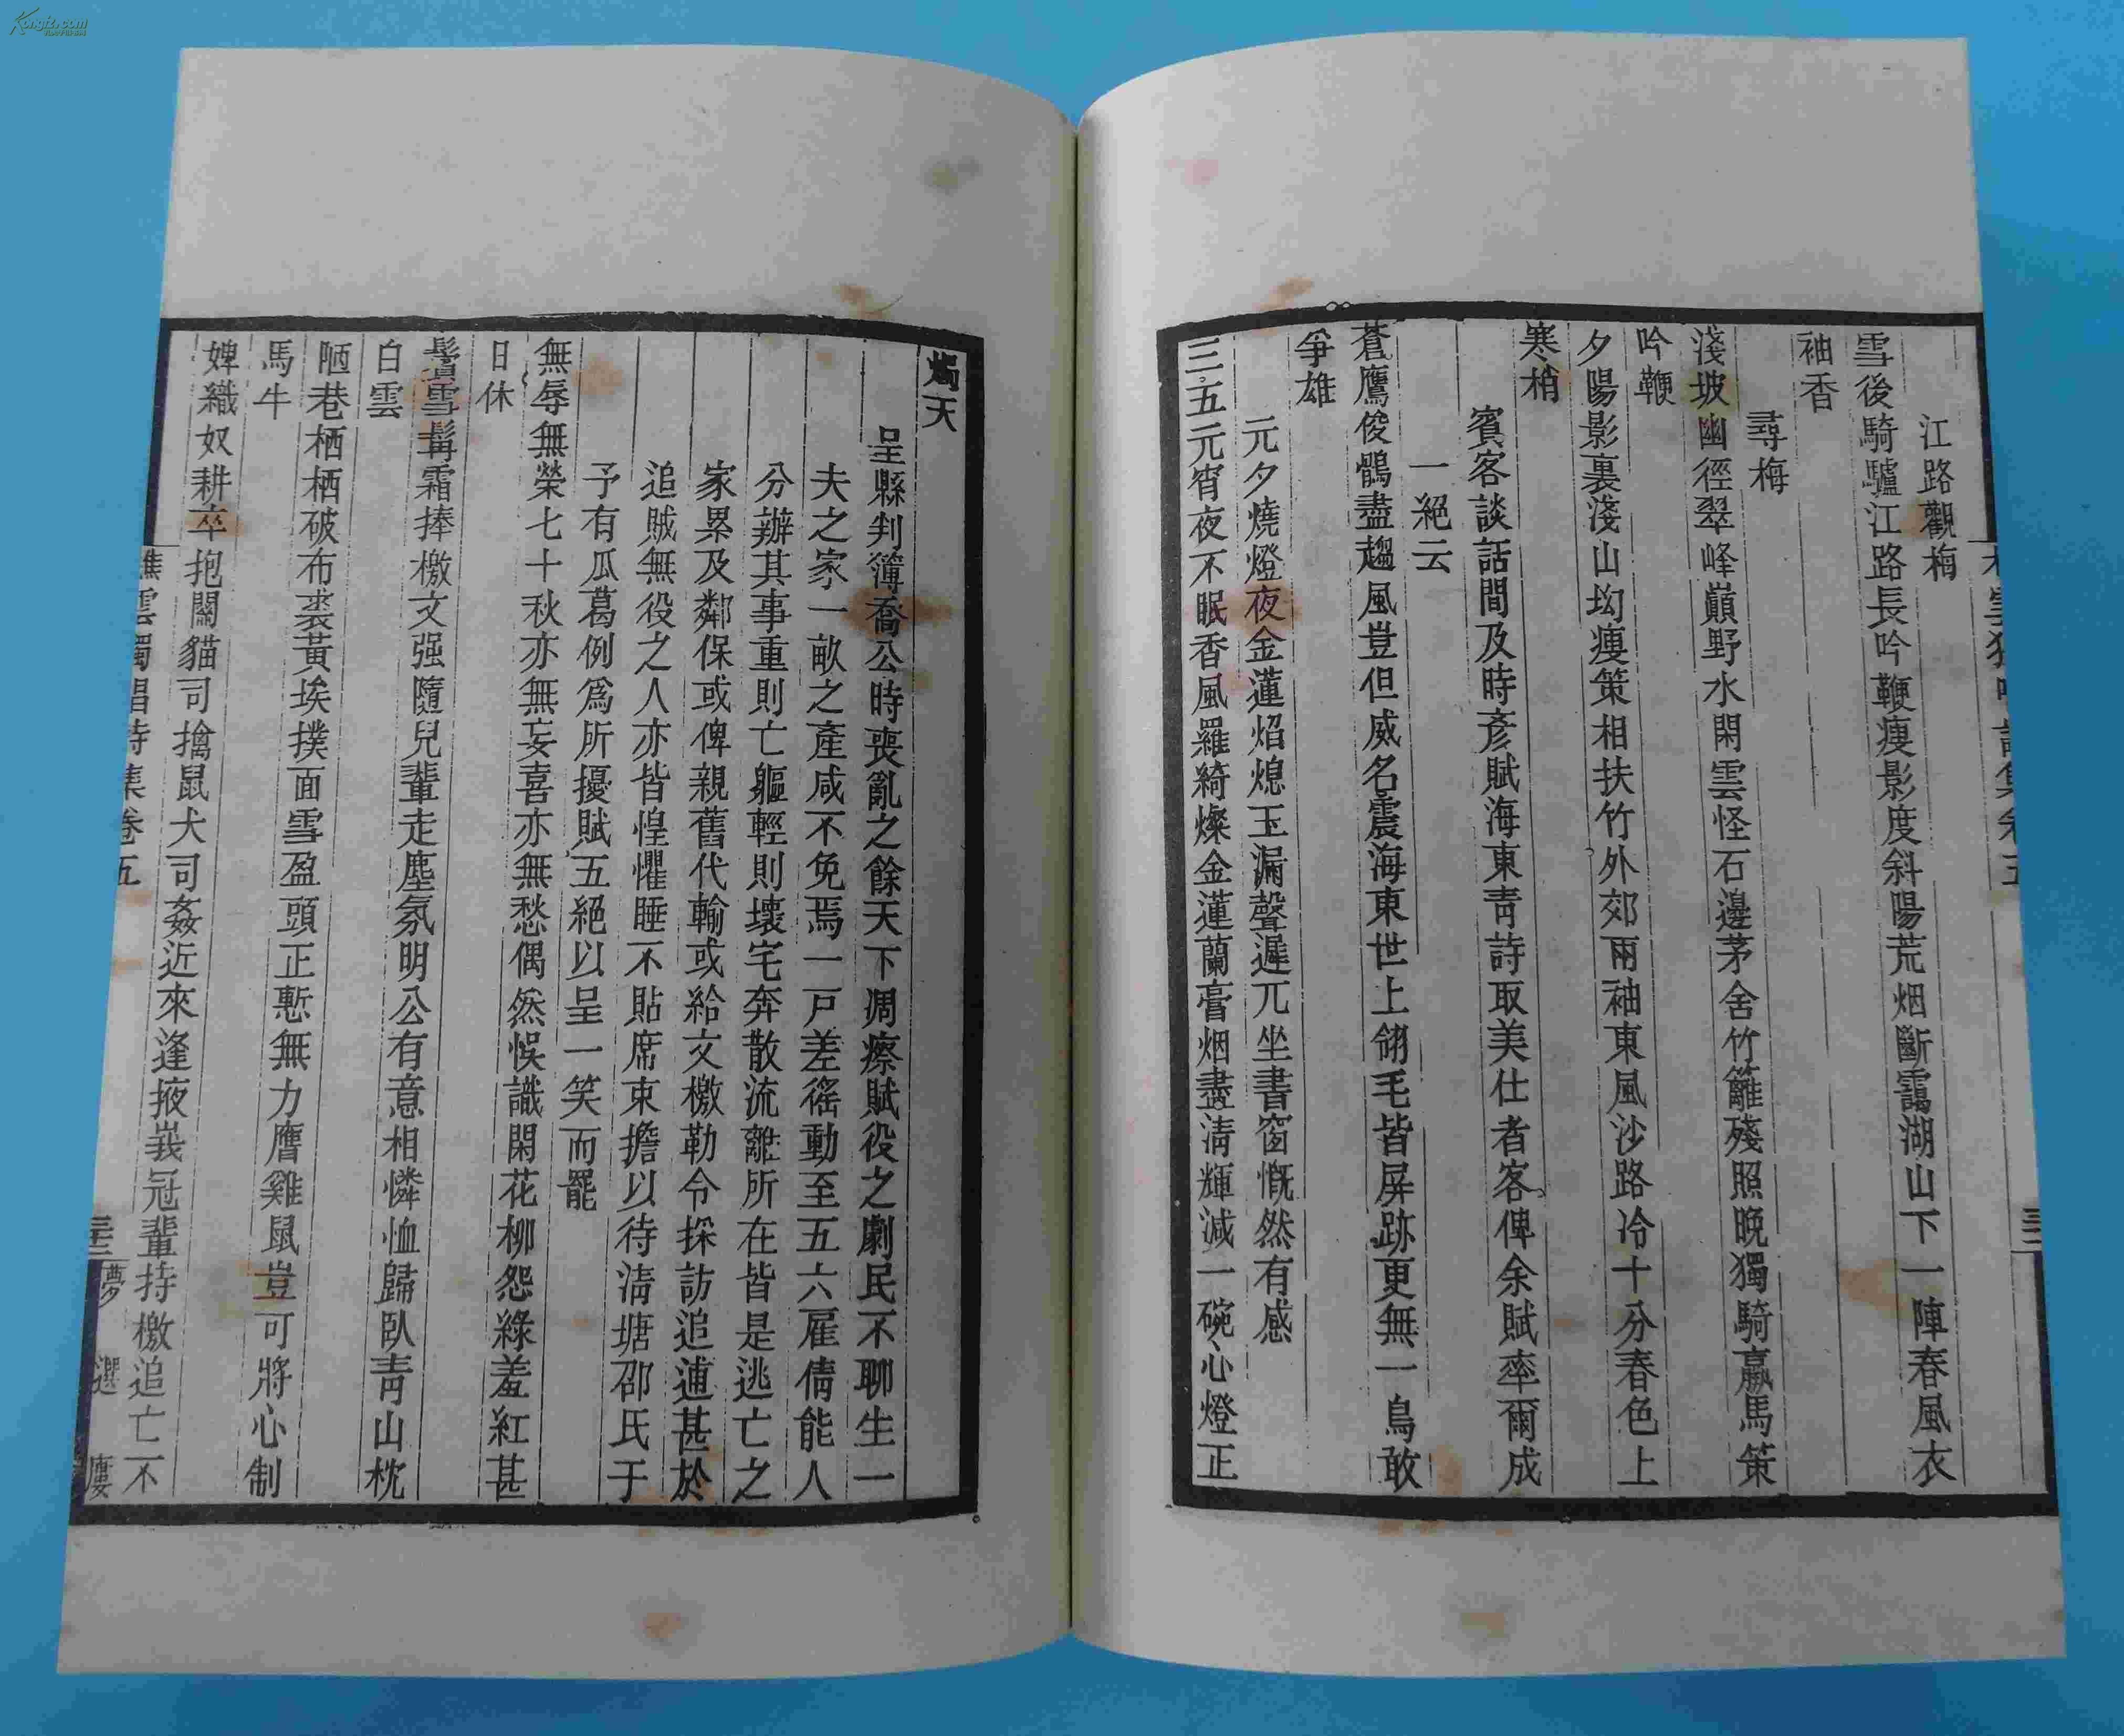 江路觀梅
雪後騎驢江路長吟鞭瘦影度斜陽荒烟斷靄湖山下一陣春風衣
袖香
尋梅
淺坡幽徑翠峰巔野水閑雲怪石邊茅舍竹籬殘照晚獨騎羸馬策
吟鞭
夕陽影裏淺山坳瘦策相扶竹外郊兩袖東風沙路冷十分春色上
寒梢
賓客談話間及時彥賦海東青詩取美仕者客俾余賦率爾成
一絕云
蒼鷹俊鶻盡趨風豈但威名震海東世上翎毛皆屏跡更無一鳥敢
爭雄
元夕燒燈夜金蓮焰熄玉漏聲遲兀坐書窗慨然有感
三五元宵夜不眠香風羅綺燦金蓮蘭膏烟盡清輝減一碗心燈正
燭天
呈縣判簿喬公時喪亂之餘天下凋瘵賦役之劇民不聊生一
夫之家一畝之產咸不免焉一戶差徭動至五六雇倩能人
分辦其事重則亡軀輕則壞宅奔散流離所在皆是逃亡之
家累及鄰保或俾親舊代輸或給文檄勒令採訪追逋甚於
追賊無役之人亦皆惶懼睡不貼席束擔以待清塘邵氏于
予有瓜葛例爲所擾賦五絕以呈一笑而罷
無辱無榮七十秋亦無妄喜亦無愁偶然悞識閑花柳怨綠羞紅甚
日休
鬢雪髯霜捧檄文强隨兒輩走塵氛明公有意相憐恤歸臥青山枕
白雲
陋巷栖栖破布裘黃埃撲面雪盈頭正慙無力膺雞鼠豈可將心制
馬牛
婢織奴耕卒抱關貓司擒鼠犬司姦近來逢掖峩冠輩持檄追亡不
樵雲獨唱詩集卷五
三十二
夢 選 廔